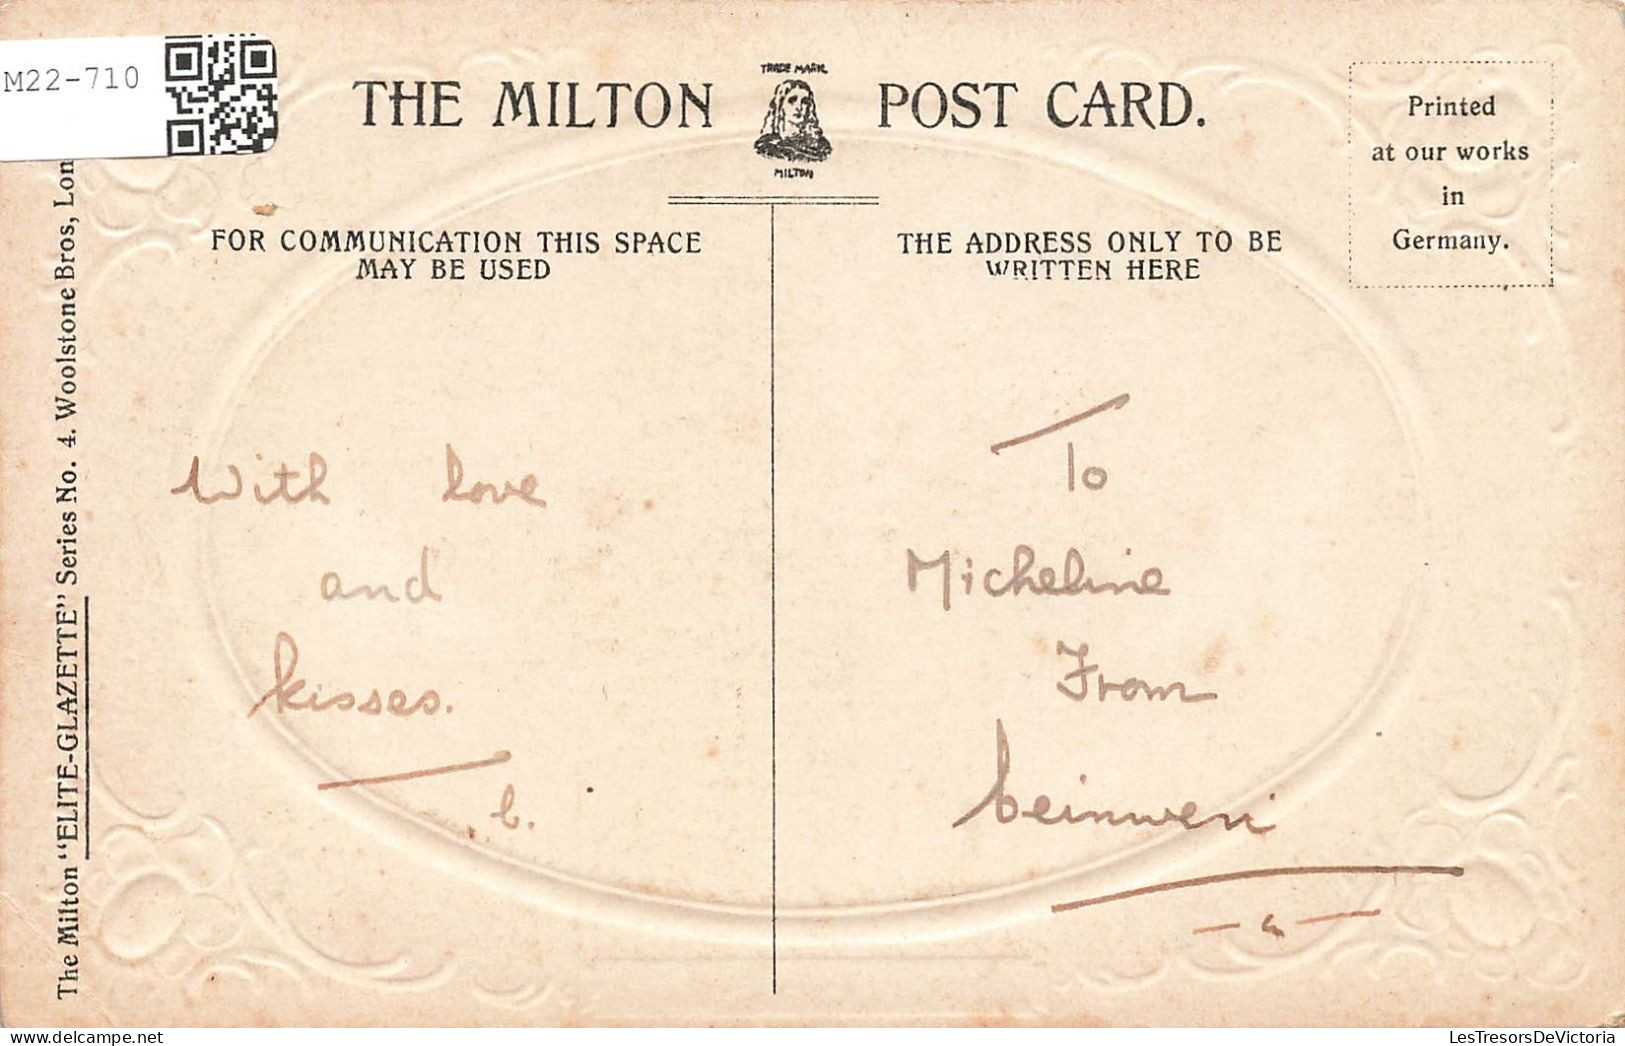 M22-710
THE MILTON POST CARD.
TRADE MARK
MILTON
Printed
at our works
in
Germany.
FOR COMMUNICATION THIS SPACE
MAY BE USED
THE ADDRESS ONLY TO BE
WRITTEN HERE
The Milton "ELITE-GLAZETTE" Series No. 4. Woolstone Bros, Lon
With love
and
kisses.
b.
To
Micheline
From
LesTresorsDeVictoria